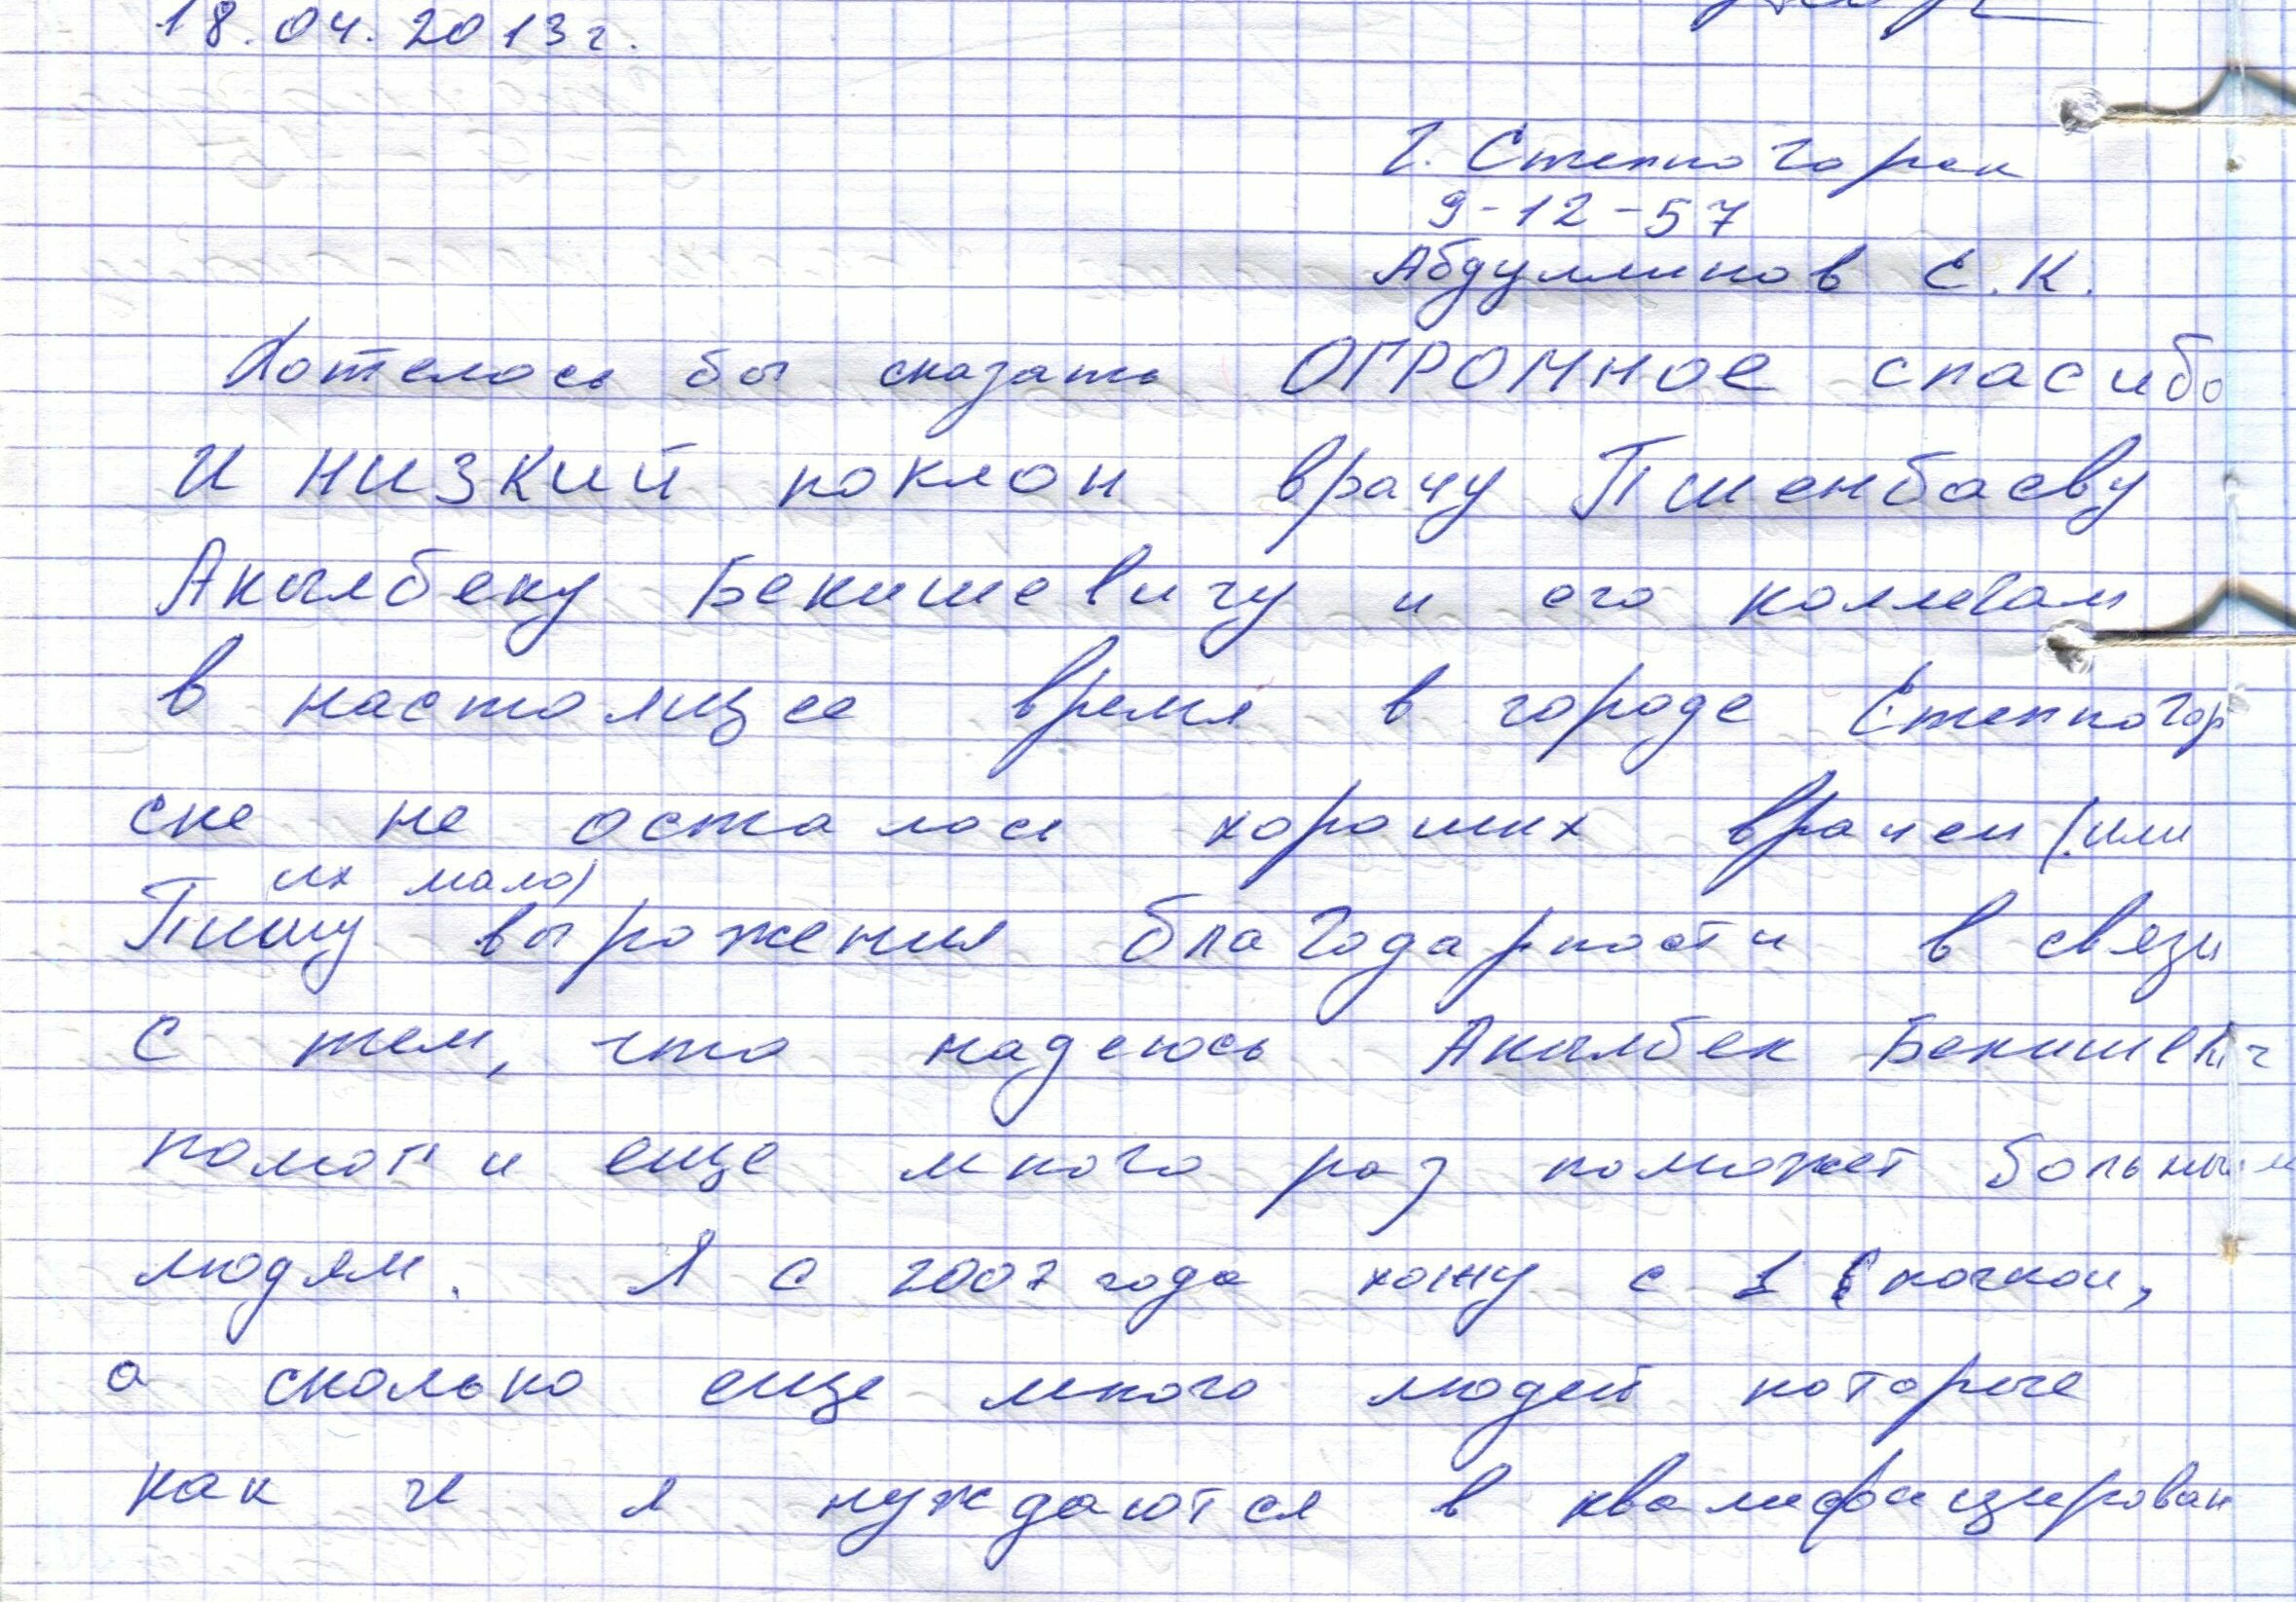 18.04.2013г.
г. Степногорск
9-12-57
Абдулминов Е.К.
Хотелось бы сказать ОГРОМНОЕ спасибо
и НИЗКИЙ поклон врачу Пшенбаеву
Акылбеку Бекишевичу и его коллегам
в настоящее время в городе Степногор
ске не осталось хороших врачей (или
их мало)
Пишу вырожения благодарности в связи
с тем, что надеюсь Акылбек Бекишевич
помог и еще много раз поможет больным
людям. Я с 2007 года хожу с 1 почкой,
а сколько еще много людей которые
как и я нуждаются в квалифицирован